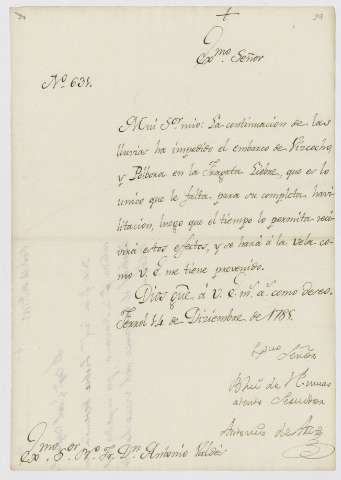 Exmo Señor
No. 631.
Mui Sor mio: La continuacion de las
lluvias ha impedido el embarco de Vizcocho,
y Pólvora en la Fragata Liebre, que es lo
unico que le falta, para su completa havi
litacion, luego que el tiempo lo permita reci
virá estos efectos, y se hará á la vela co
mo V. E. me tiene prevenido.
Dios gue. á V. E. ms. as. como deseo.
Ferrol 14 de Diziembre de 1785.
Exmo Señor
B. de V.
atento Servidor
Antonio de
Exmo Sor Bo. Fr. Dn. Antonio Valdés